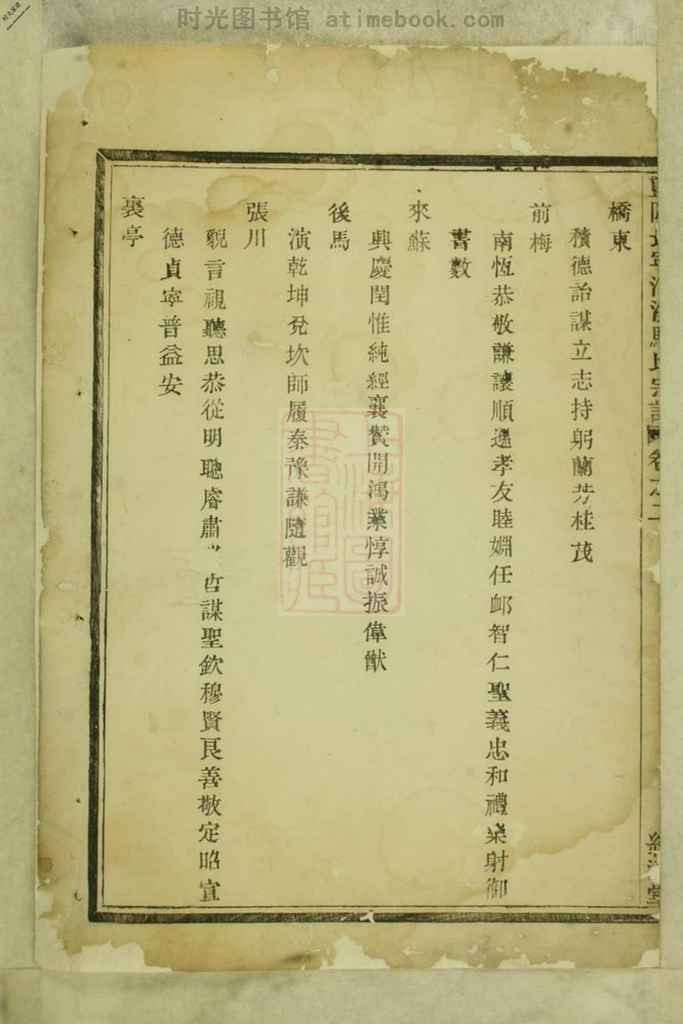 时光图书馆 atimebook.com
馬氏宗譜 卷之二
橋東
積德詒謀立志持躬蘭芳桂茂
前梅
南恆恭敬謙讓順遜孝友睦婣任卹智仁聖義忠和禮樂射御
書數
來蘇
興慶閏惟純經襄贊開鴻業惇誠振偉猷
後馬
演乾坤兌坎師履泰豫謙隨觀
張川
貌言視聽思恭從明聰睿肅 哲謀聖欽穆賢良善敬定昭宣
德貞寧普益安
裏亭